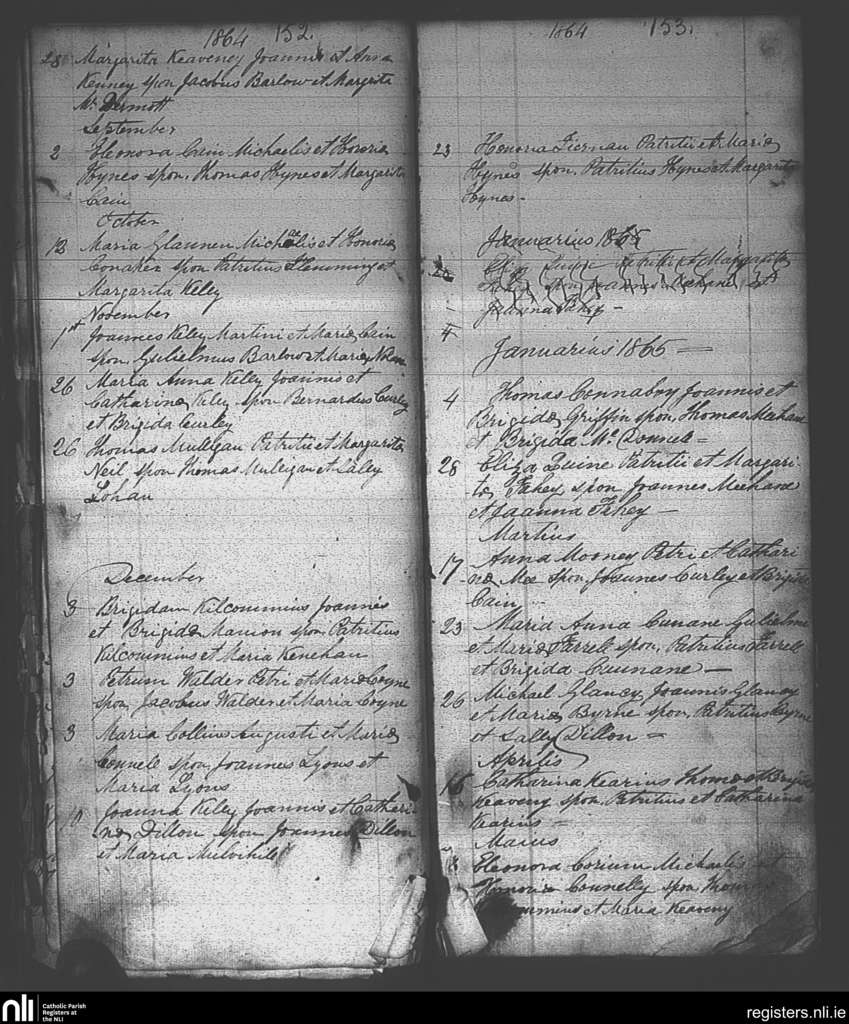 1864 152.
28 Margarita Keaveney Joannis et Anna
Kenney spon Jacobus Barlow et Margrita
Mc Dermott
September
2 Eleonora Cain Michaelis et Honoria
Hynes spon. Thomas Hynes et Margarita
Cain
October
Maria Glannen Michaelis et Honoria
spon Patritius Flemming et
Margarita Keley
November
1st Joannes Keley Martini et Maria Cain
spon. Gulielmus Barlow et Maria
26 Maria Anna Kelly Joannis et
Catharina Keley spon Bernardus Curley
et Brigida Curley
26 Thomas Mulligan Patritii et Margarita
Neil spon Thomas Muligan et
Lohan
December
3 Brigidam Kilcommins Joannis
et Brigida Manion spon Patritius
Kilcommins et Maria Kenehan
3 Petrum Walden Petri et Maria Coyne
spon Jacobus Walden et Maria Coyne
3 Maria Collins Augusti et Maria
spon Joannes Lyons et
Maria Lyons
10 Joanna Keley Joannis et Catheri-
na Dillon spon Joannes Dillon
et Maria Mulvihile
1864 153.
23 Honoria Tiernan Patritii et Maria
Hynes spon. Patritius Hynes et Margarita
Hynes -
Januarius 1865
Patritii et Margarita
spon Joannes Meehane et
Joanna Fahey -
4
Januarius 1865 =
4 Thomas Connaboy Joannis et
Brigida Griffin spon. Thomas Meehan
et Brigida Mc Donnele =
28 Eliza Quine Patritii et Margari-
ta Fahey spon Joannes Meehane
et Joanna Fahey -
Martius
17 Anna Mooney Petri et Cathari
na Mee spon. Joannes Curley et Brigida
Cain
23 Maria Anna Cunane Gulielmi
et Maria Farrele spon. Patritius Farrele
et Brigida Cunnane -
26 Michael Glancy Joannis Glancy
et Maria Byrne spon. Patritius Byrne
et Sally Dillon =
Aprilis
16 Catharina Kearins Thoma et Brigida
Keaveny spon. Patritius et Catharina
Kearins =
Maius
Eleonora Michaelis et
Honoria Connelly spon Thomas
et Maria Keaveny
nli Catholic Parish
Registers at
the NLI
registers.nli.ie